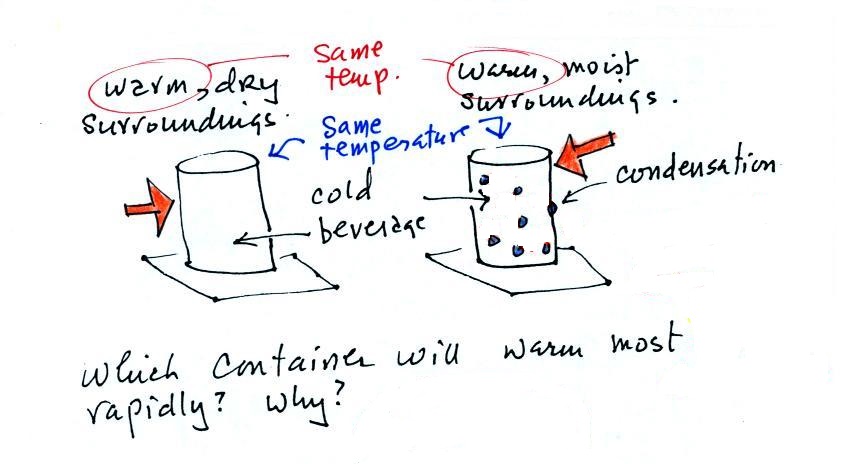 warm, dry
surroundings.
Same
temp.
warm, moist
surroundings.
Same
temperature
cold
beverage
condensation
Which container will warm most
rapidly? Why?